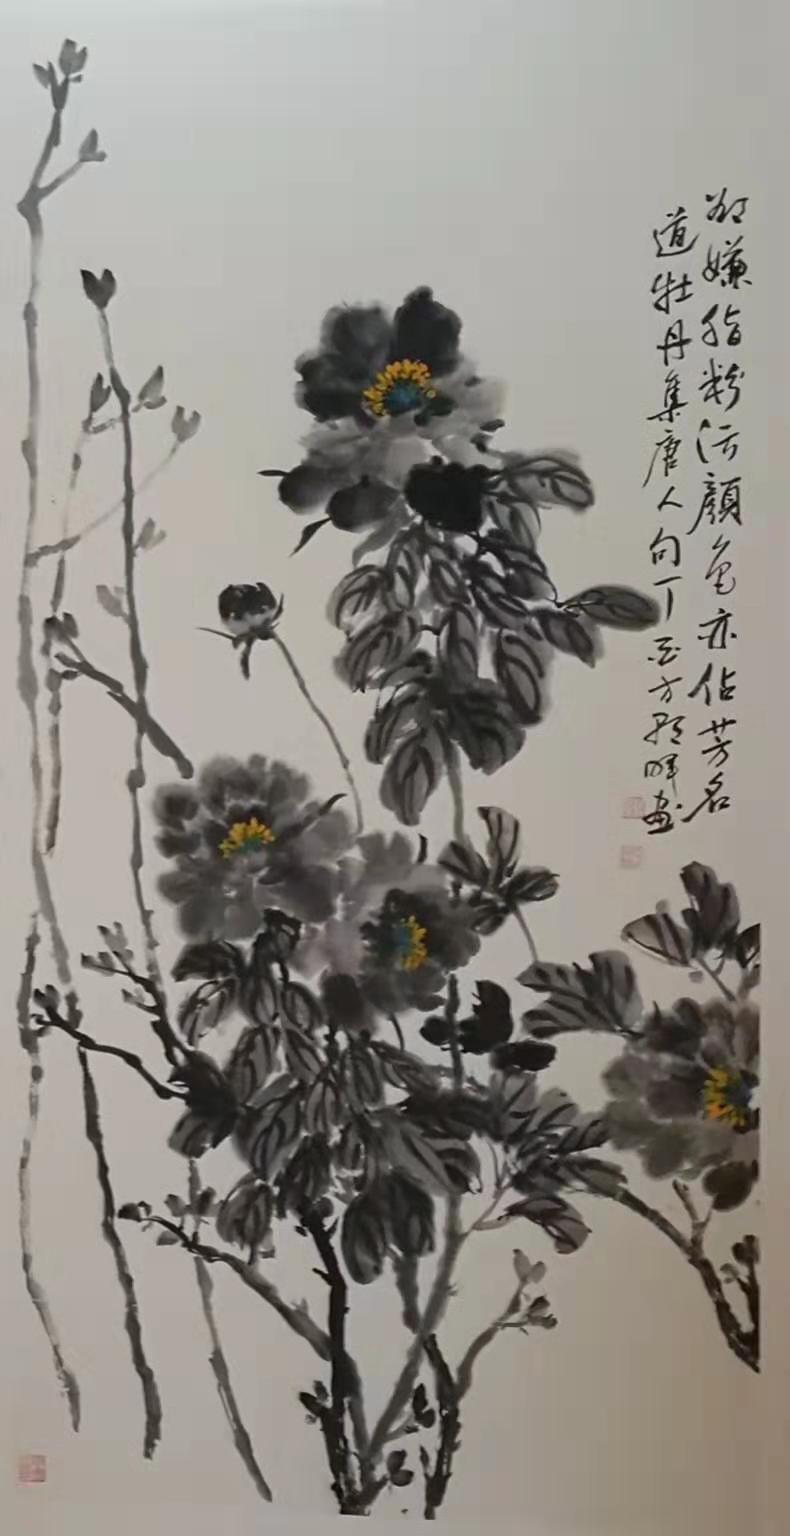 却嫌脂粉污顔色亦佔芳名
道牡丹集唐人句丁酉方暉画